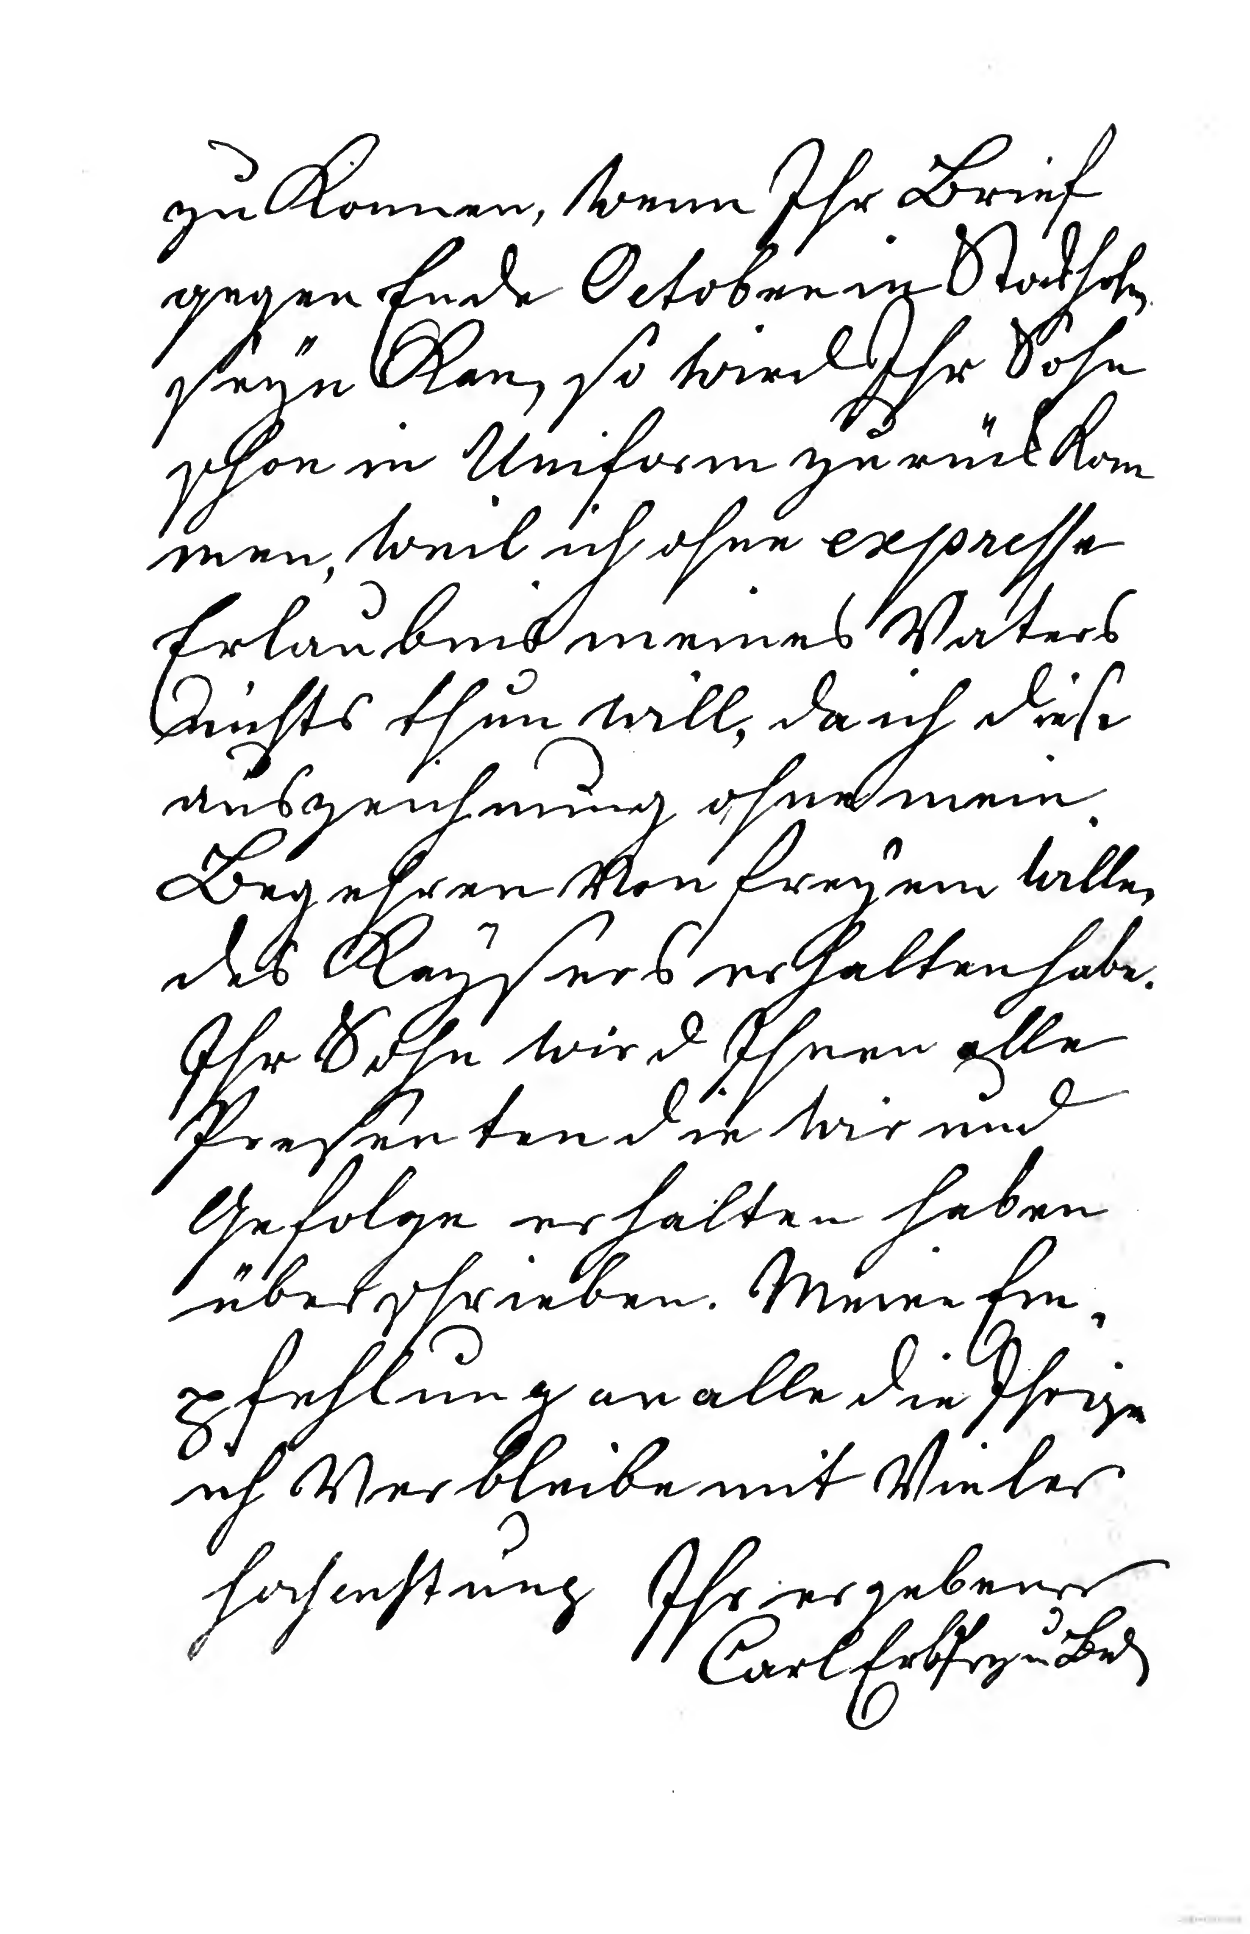 zu Konnen, wenn Ihr Brief
gegen Ende October in Stockholm
seÿn Kan, so wird Ihr Sohn
schon in Uniform zurück Kom
men, weil ich ohne expresse
Erlaubnis meines Vaters
nichts thun will, da ich diese
auszeichnung ohne mein
Begehren von freÿem Willen
des Kaÿsers erhalten habe.
Ihr Sohn wird Ihnen alle
Presenten die wir und
Gefolge erhalten haben
überschrieben. Meine Em,
pfehlung an alle die Ihrige
ich verbleibe mit vieler
hochachtung Ihr ergebener
Carl Erbprz zu Bad